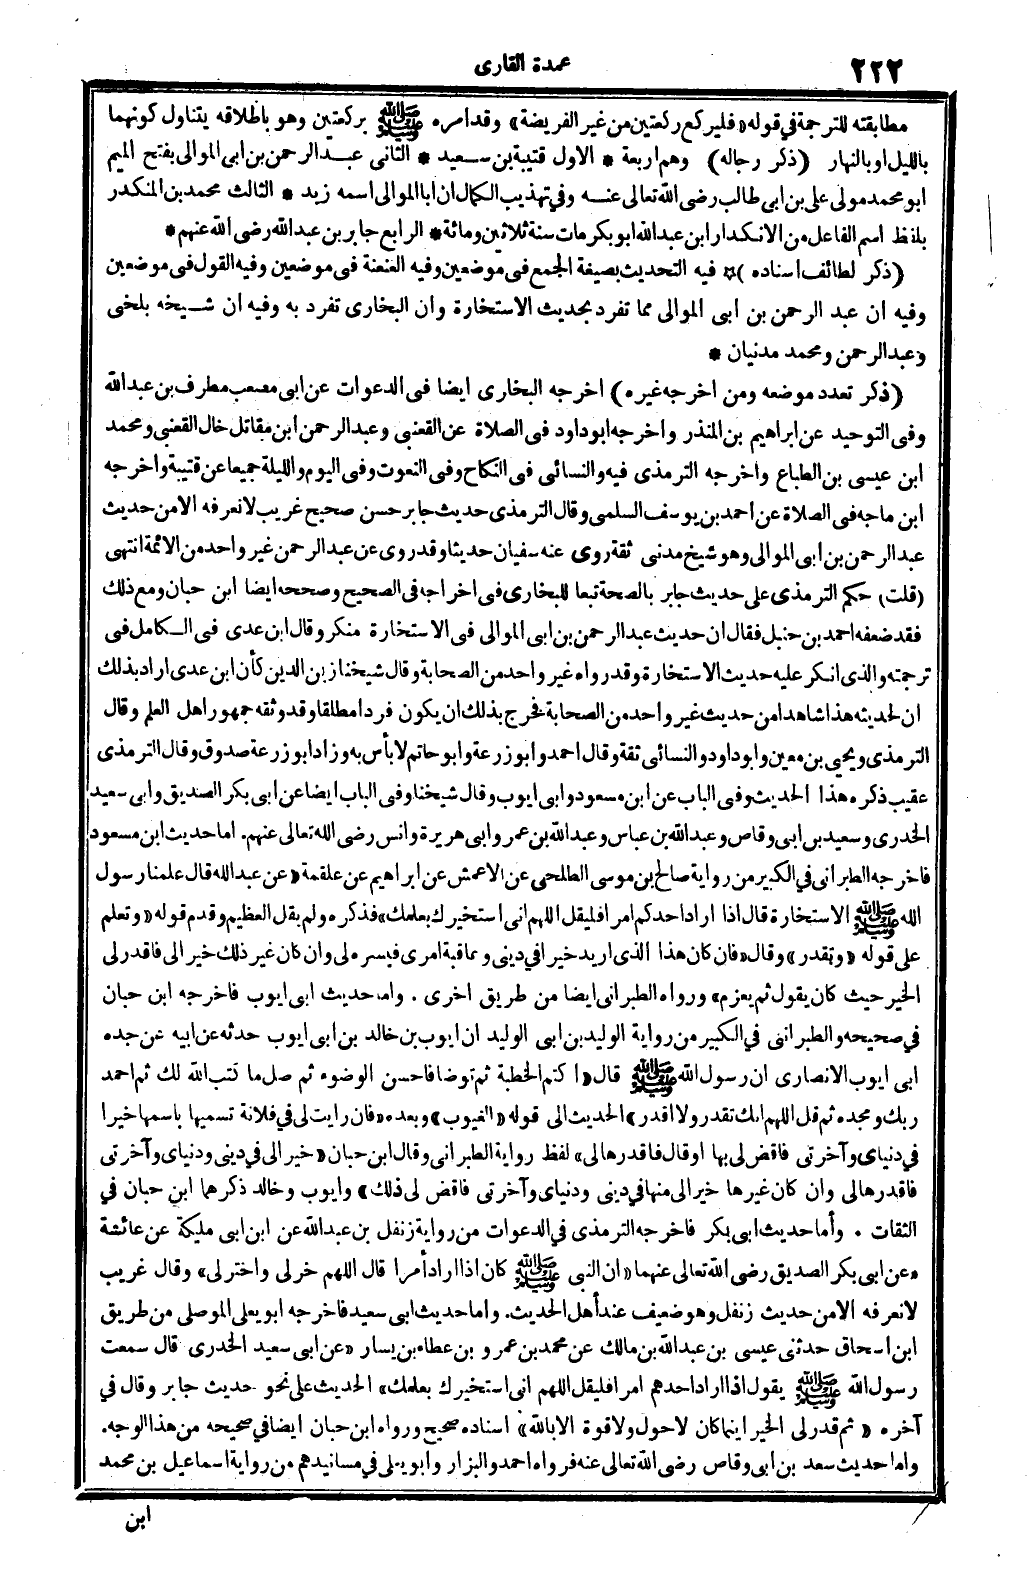 ٢٢٢
عمدة القارى
مطابقته للترجمة في قوله «فليركع ركعتين من غير الفريضة» وقد امره ﷺ بركعتين وهو باطلاقه يتناول كونهما
بالليل او بالنهار (ذكر رجاله) وهم اربعة * الاول قتيبة بن سعيد * الثانى عبد الرحمن بن ابى الموالى بفتح الميم
ابو محمد مولى على بن ابى طالب رضى الله تعالى عنه وفي تهذيب الكمال ان ابا الموالى اسمه زيد * الثالث محمد بن المنكدر
بلفظ اسم الفاعل من الانكدار ابن عبد الله ابو بكر مات سنة ثلاثين ومائة * الرابع جابر بن عبد الله رضى الله عنهم *
(ذكر لطائف اسناده) * فيه التحديث بصيغة الجمع فى موضعين وفيه العنعنة فى موضعين وفيه القول فى موضعين
وفيه ان عبد الرحمن بن ابى الموالى مما تفرد بحديث الاستخارة وان البخارى تفرد به وفيه ان شيخه بلخى
وعبد الرحمن ومحمد مدنيان *
(ذكر تعدد موضعه ومن اخرجه غيره) اخرجه البخارى ايضا فى الدعوات عن ابى مصعب مطرف بن عبد الله
وفى التوحيد عن ابراهيم بن المنذر واخرجه ابو داود فى الصلاة عن القعنبى وعبد الرحمن ابن مقاتل خال القعنبى ومحمد
ابن عيسى بن الطباع واخرجه الترمذى فيه والنسائى فى النكاح وفى النعوت وفى اليوم والليلة جميعا عن قتيبة واخرجه
ابن ماجه فى الصلاة عن احمد بن يوسف السلمى وقال الترمذى حديث جابر حسن صحيح غريب لا نعرفه الا من حديث
عبد الرحمن بن ابى الموالى وهو شيخ مدنى ثقة روى عنه سفيان حديثا وقد روى عن عبد الرحمن غير واحد من الائمة انتهى
(قلت) حكم الترمذى على حديث جابر بالصحة تبعا للبخارى فى اخراجه فى الصحيح وصححه ايضا ابن حبان ومع ذلك
فقد ضعفه احمد بن حنبل فقال ان حديث عبد الرحمن بن ابى الموالى فى الاستخارة منكر وقال ابن عدى فى الكامل فى
ترجمته والذى انكر عليه حديث الاستخارة وقد رواه غير واحد من الصحابة وقال شيخنا زين الدين كأن ابن عدى اراد بذلك
ان لحديثه هذا شاهدا من حديث غير واحد من الصحابة فخرج بذلك ان يكون فردا مطلقا وقد وثقه جمهور اهل العلم وقال
الترمذى ويحيى بن معين وابو داود والنسائى ثقة وقال احمد وابو زرعة وابو حاتم لا بأس به وزاد ابو زرعة صدوق وقال الترمذى
عقيب ذكره هذا الحديث وفى الباب عن ابن مسعود وابى ايوب وقال شيخنا وفى الباب ايضا عن ابى بكر الصديق وابى سعيد
الخدرى وسعيد بن ابى وقاص وعبد الله بن عباس وعبد الله بن عمر وابى هريرة وانس رضى الله تعالى عنهم. اما حديث ابن مسعود
فاخرجه الطبرانى في الكبير من رواية صالح بن موسى الطلحى عن الاعمش عن ابراهيم عن علقمة «عن عبد الله قال علمنا رسول
الله ﷺ الاستخارة قال اذا اراد احدكم امرا فليقل اللهم انى استخيرك بعلمك» فذكره ولم يقل العظيم وقدم قوله «وتعلم
على قوله «وتقدر» وقال «فان كان هذا الذى اريد خيرا في دينى وعاقبة امرى فيسره لى وان كان غير ذلك خيرا لى فاقدر لى
الخير حيث كان يقول ثم يعزم» ورواه الطبرانى ايضا من طريق اخرى . واما حديث ابى ايوب فاخرجه ابن حبان
في صحيحه والطبرانى في الكبير من رواية الوليد بن ابى الوليد ان ايوب بن خالد بن ابى ايوب حدثه عن ابيه عن جده
ابى ايوب الانصارى ان رسول الله ﷺ قال «اكتم الخطبة ثم توضا فاحسن الوضوء ثم صل ما كتب الله لك ثم احمد
ربك ومجده ثم قل اللهم انك تقدر ولا اقدر» الحديث الى قوله «الغيوب» وبعده «فان رايت لى في فلانة تسميها باسمها خيرا
في دنياى وآخرتى فاقض لى بها او قال فاقدرها لى» لفظ رواية الطبرانى وقال ابن حبان «خيرا لى في دينى ودنياى وآخرتى
فاقدرها لى وان كان غيرها خيرا لى منها في دينى ودنياى وآخرتى فاقض لى ذلك» وايوب وخالد ذكرهما ابن حبان في
الثقات . وأما حديث ابى بكر فاخرجه الترمذى في الدعوات من رواية زنفل بن عبد الله عن ابن ابى مليكة عن عائشة
«عن ابى بكر الصديق رضى الله تعالى عنهما «ان النبى ﷺ كان اذا اراد أمرا قال اللهم خر لى واختر لى» وقال غريب
لا نعرفه الا من حديث زنفل وهو ضعيف عند أهل الحديث. واما حديث ابى سعيد فاخرجه ابو يعلى الموصلى من طريق
ابن اسحاق حدثنى عيسى بن عبد الله بن مالك عن محمد بن عمرو بن عطاء بن يسار «عن ابى سعيد الخدرى قال سمعت
رسول الله ﷺ يقول اذا اراد احدهم امرا فليقل اللهم انى استخيرك بعلمك» الحديث على نحو حديث جابر وقال في
آخره «ثم قدر لى الخير اينما كان لا حول ولا قوة الا بالله» اسناده صحيح ورواه ابن حبان ايضا في صحيحه من هذا الوجه.
واما حديث سعد بن ابى وقاص رضى الله تعالى عنه فرواه احمد والبزار وابو يعلى في مسانيدهم من رواية اسماعيل بن محمد
ابن